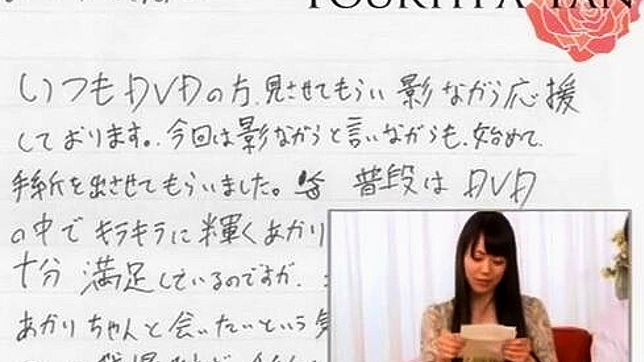 YOUKIHI A FAN
いつもDVDの方、見させてもらい影ながら応援
しております。今回は影ながらと言いながらも、始めて
手紙を出させてもらいました。普段はDVD
の中でキラキラに輝くあかり
十分満足しているのですが、
あかりちゃんと会いたいという気